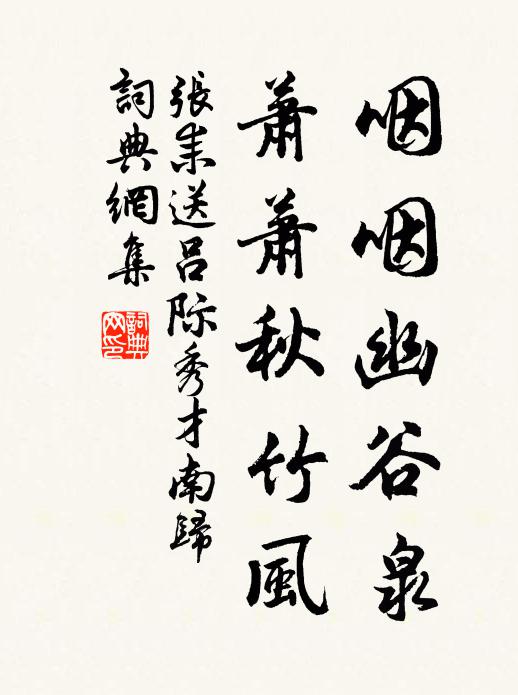 咽咽幽谷泉
蕭蕭秋竹風
張耒送呂際秀才南歸
詞典網集
詞典網印